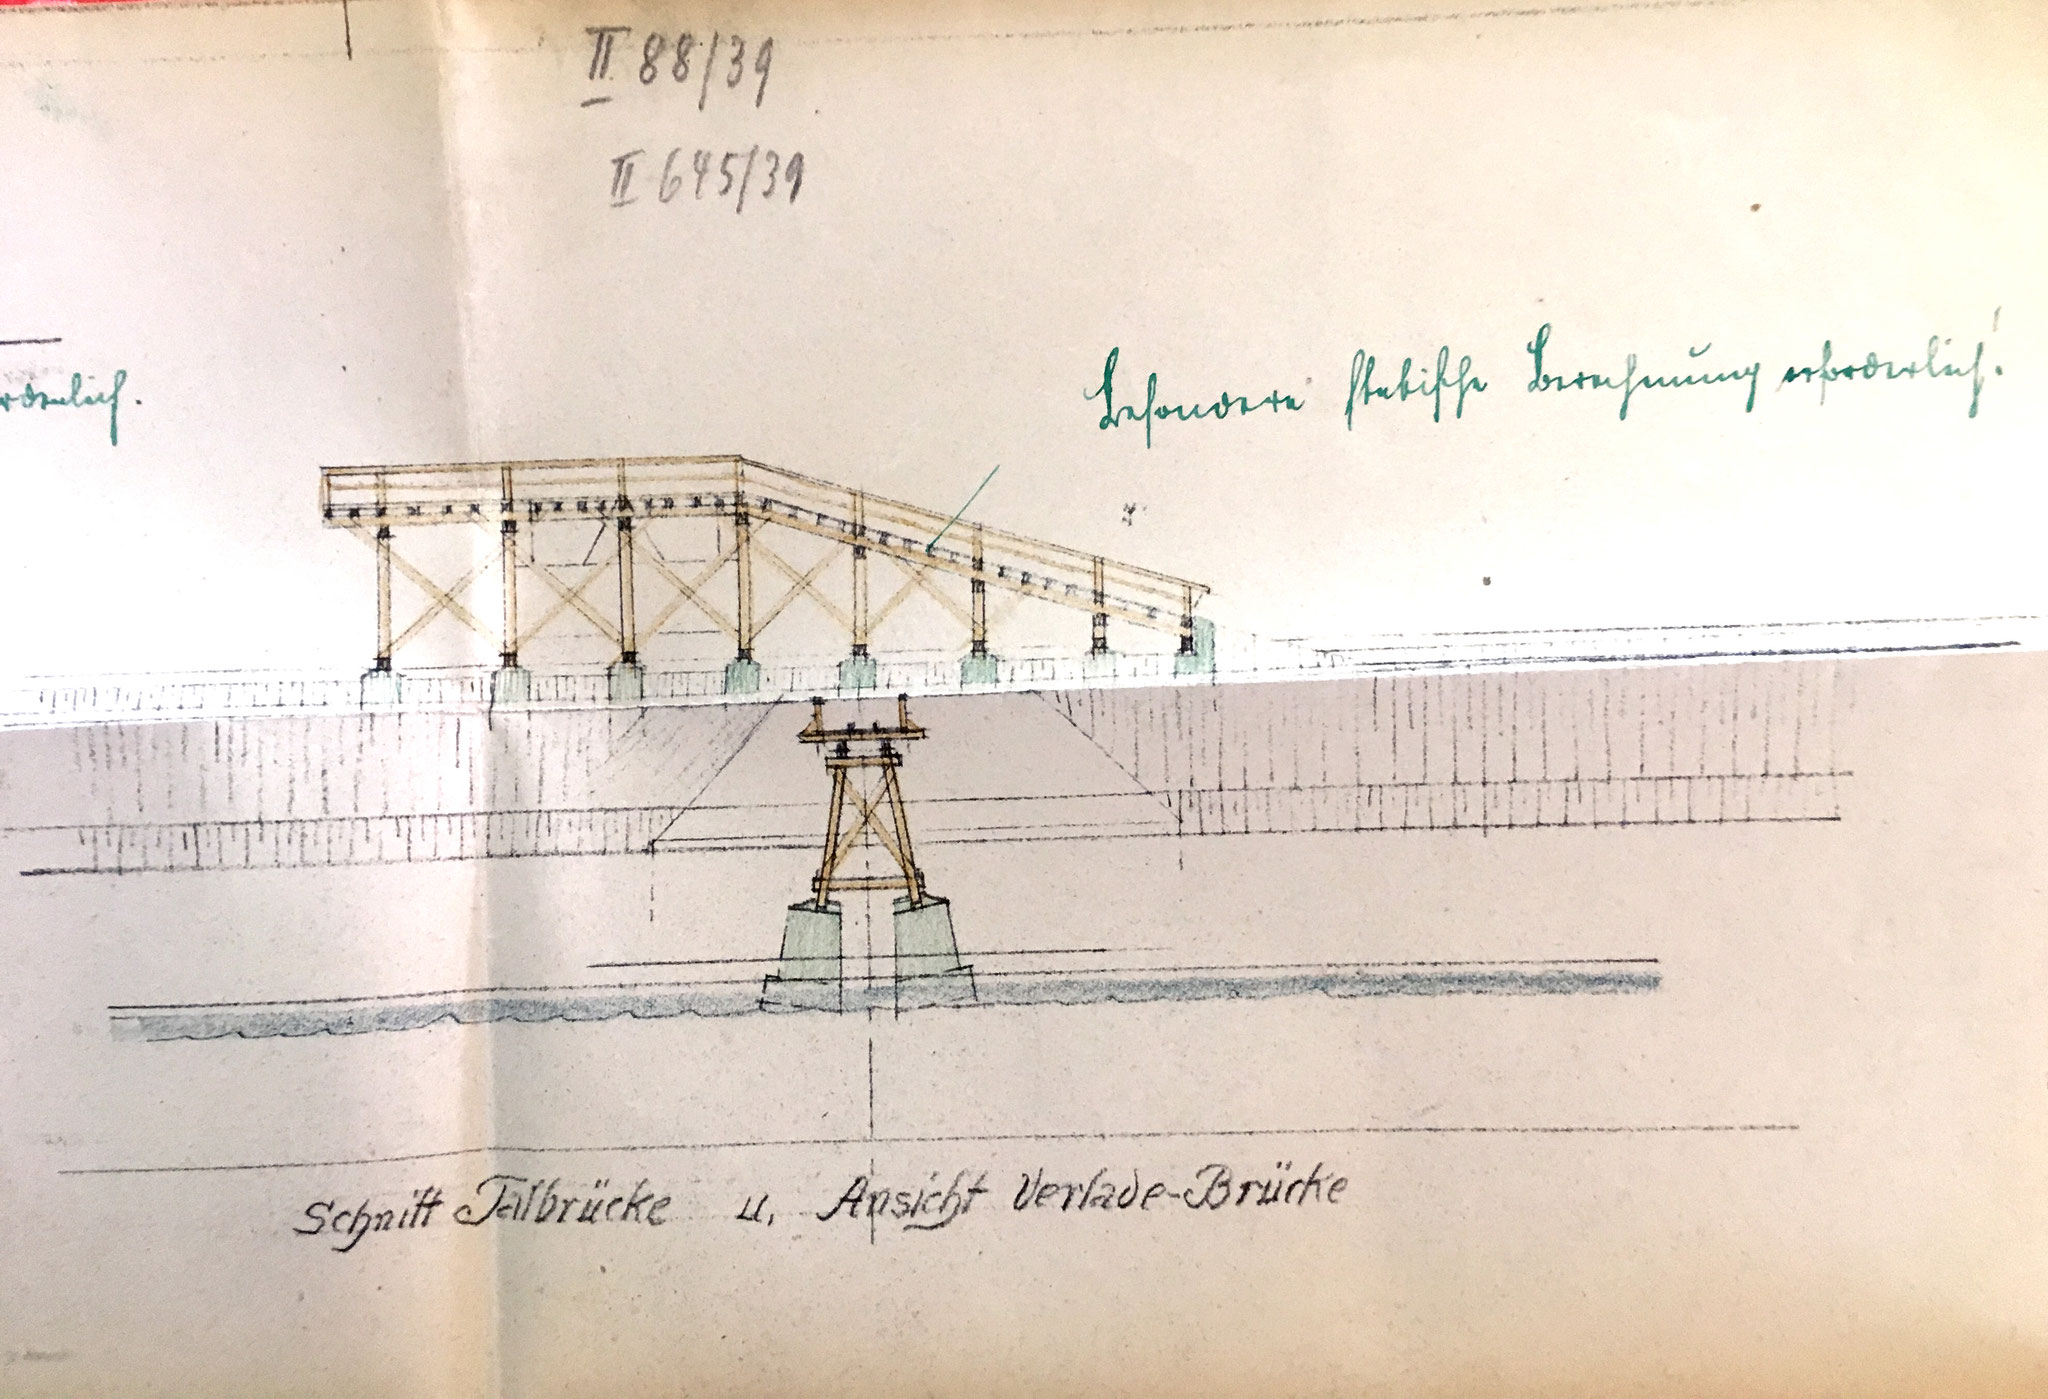 II 88/39
II 645/39
Besondere statische Berechnung erforderlich!
rderlich.
Schnitt Talbrücke u. Ansicht Verlade-Brücke